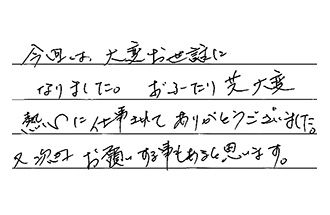 今回は、大変お世話に
なりました。 おふたり共大変
熱心に仕事されて ありがとうございました。
又次回 お願いする事もあると思います。